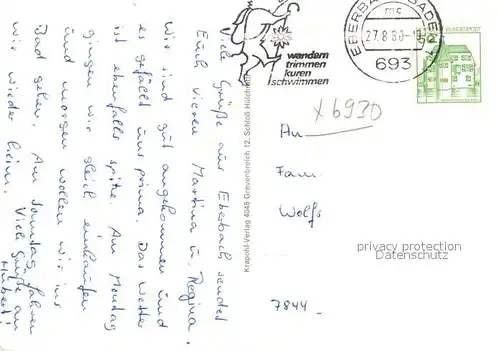 Viele Grüße aus Eberbach sendet
Euch vieren Martina u. Regina.
Wir sind gut angekommen und
es gefällt uns prima. Das Wetter
ist ebenfalls spitze. Am Montag
gingen wir gleich einkaufen
und morgen wollen wir ins
Bad gehen. Am Sonntag fahren
wir wieder heim. Viele Grüße an
Hubert!
Krapohl-Verlag 4048 Grevenbroich 12, Schloß Hülchrath
wandern
trimmen
kuren
schwimmen
EBERBACH, BADEN 1
mc
27.8.80-18
693
BUNDESPOST
X 6930
An
Fam.
Wolfs
privacy protection
Datenschutz
7844